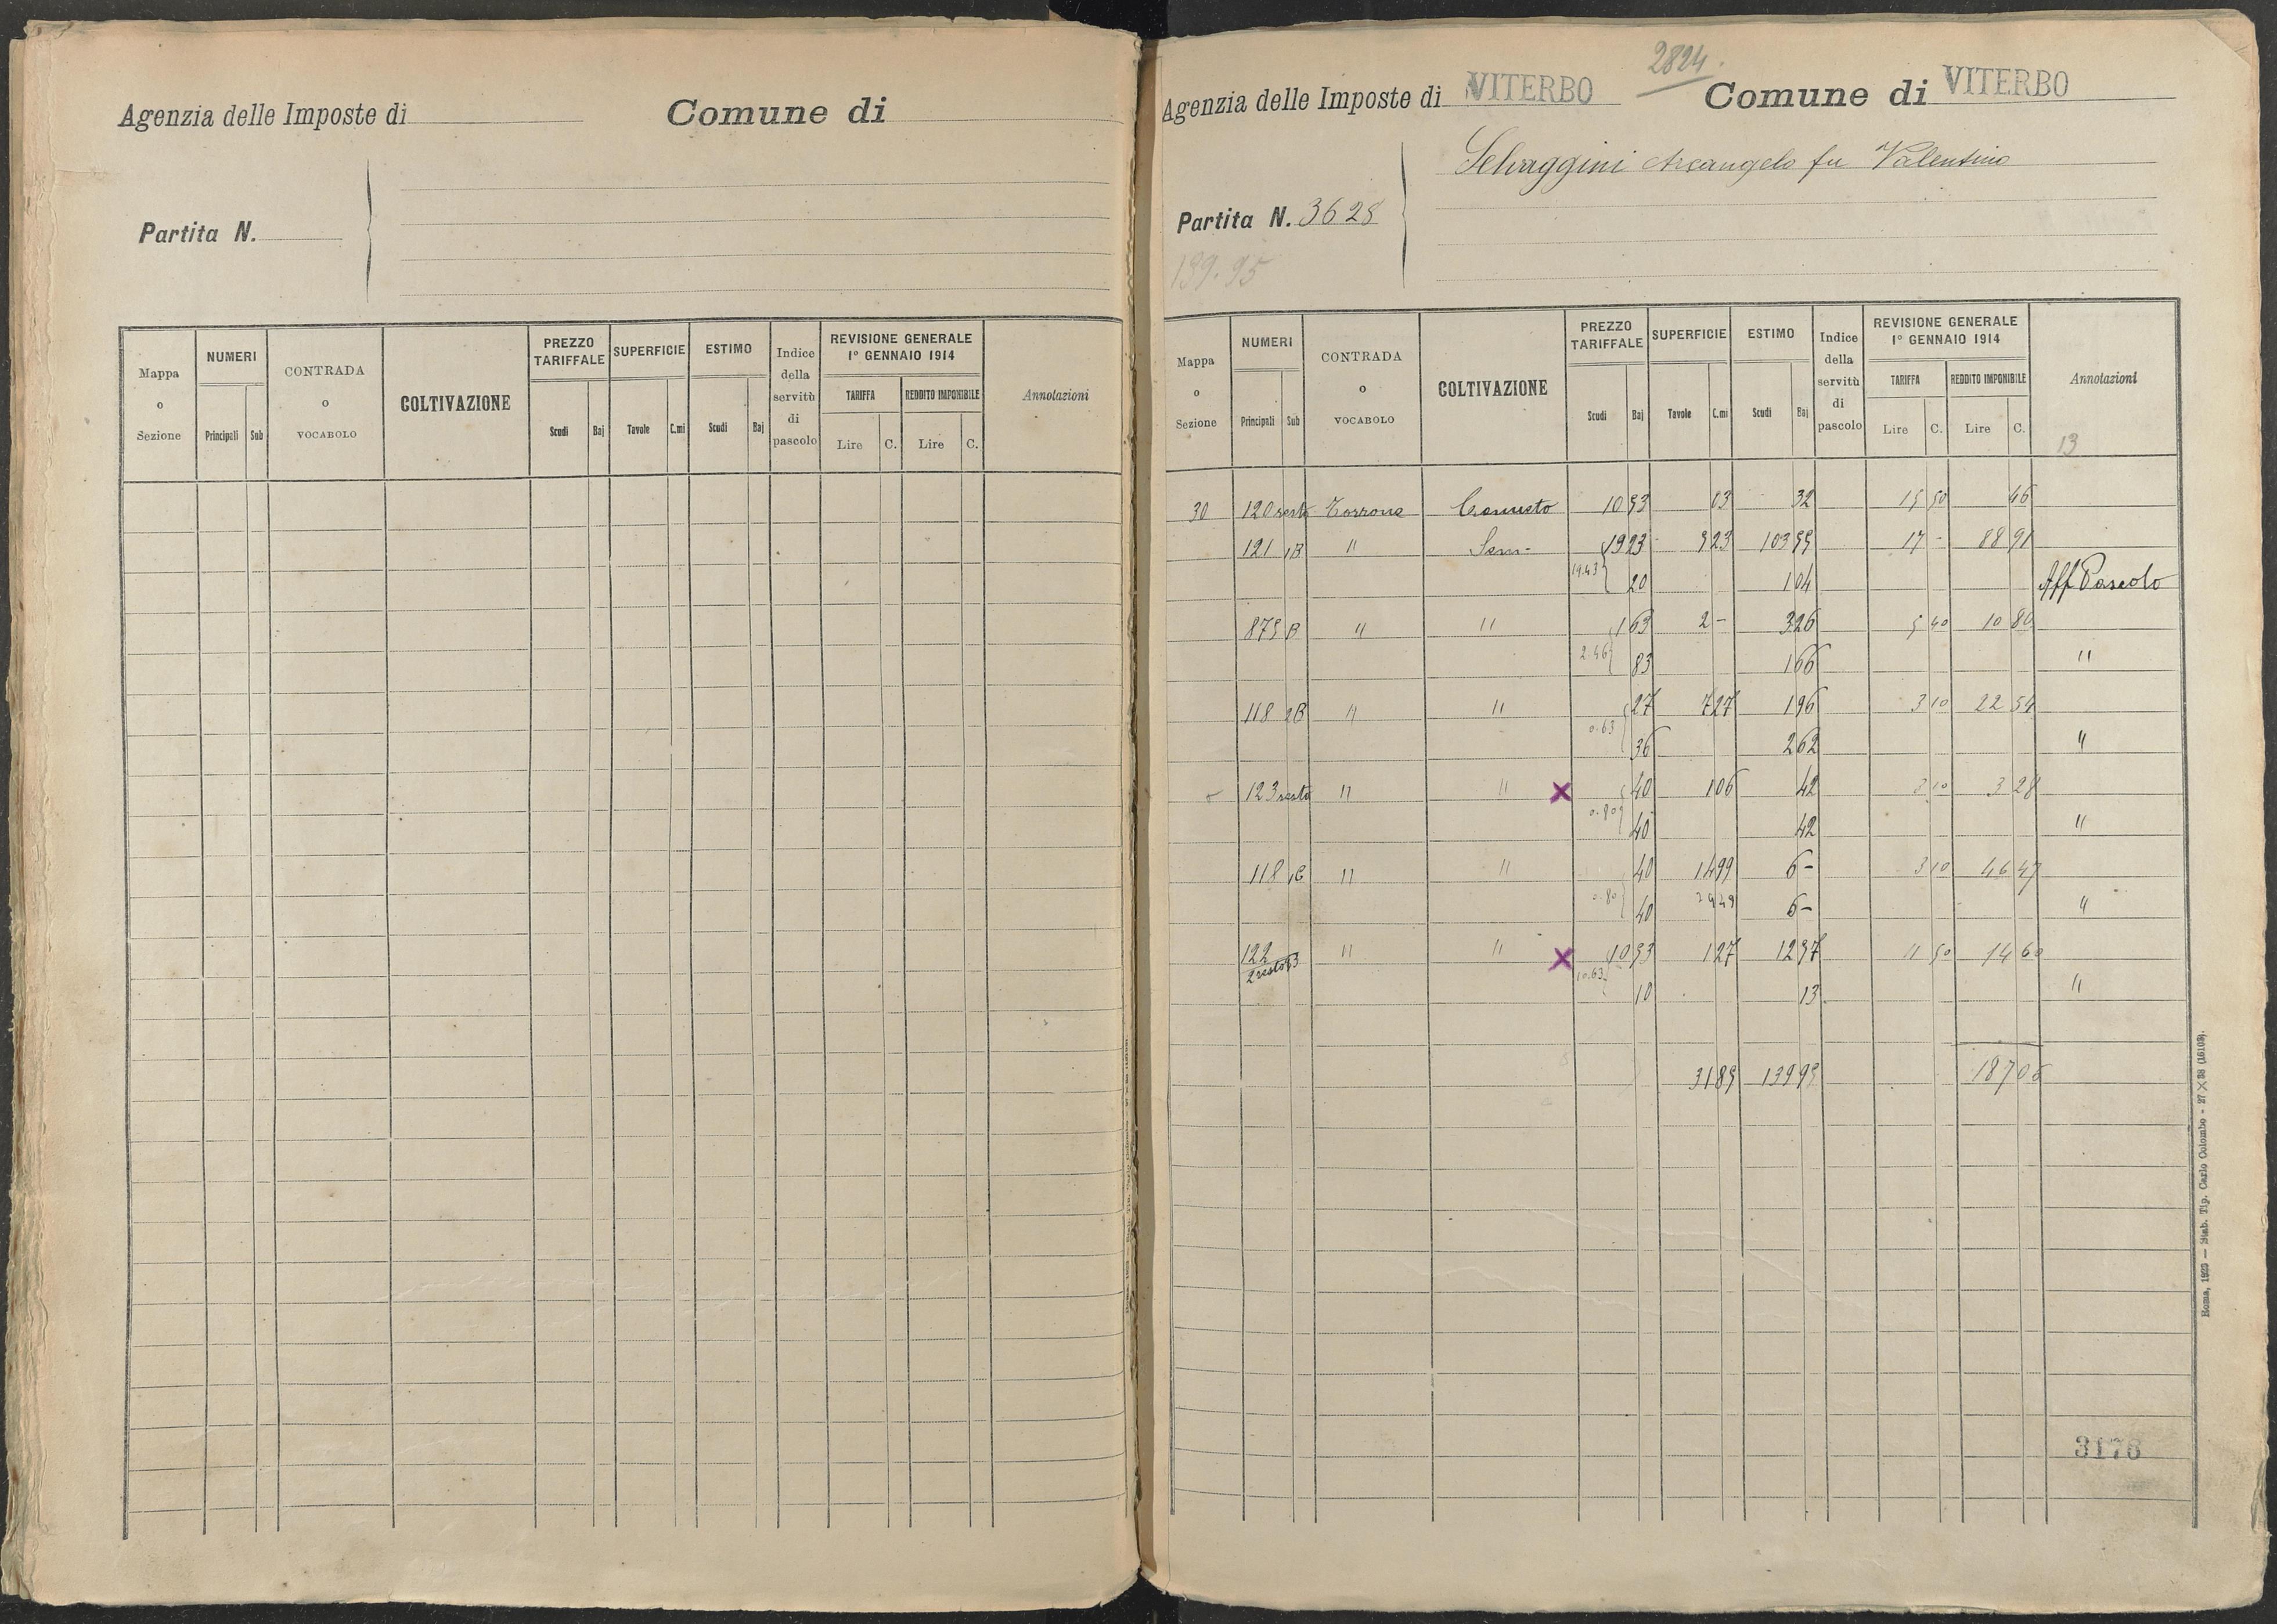 Agenzia delle Imposte di
Comune di
Partita N.
Mappa o Sezione
NUMERI
Principali Sub
CONTRADA o VOCABOLO
COLTIVAZIONE
PREZZO TARIFFALE
Scudi Baj
SUPERFICIE
Tavole C.mi
ESTIMO
Scudi Baj
Indice della servitù di pascolo
REVISIONE GENERALE
1° GENNAIO 1914
TARIFFA
Lire C.
REDDITO IMPONIBILE
Lire C.
Annotazioni
2824.
Agenzia delle Imposte di VITERBO
Comune di VITERBO
Selvaggini Arcangelo fu Valentino
Partita N. 3628
139.95
Mappa o Sezione
NUMERI
Principali Sub
CONTRADA o VOCABOLO
COLTIVAZIONE
PREZZO TARIFFALE
Scudi Baj
SUPERFICIE
Tavole C.mi
ESTIMO
Scudi Baj
Indice della servitù di pascolo
REVISIONE GENERALE
1° GENNAIO 1914
TARIFFA
Lire C.
REDDITO IMPONIBILE
Lire C.
Annotazioni
13
30 120 resto Torrone 10 53 03 32 15 50 46
121 1B " Sem. 19 23 5 23 103 59 17 - 88 91
19.43 20 1 04 Aff Pascolo
875 B " " 1 63 2 - 3 26 5 40 10 80
2.46 83 1 66 "
118 2B " " 27 7 27 1 96 3 10 22 54
0.63 36 2 62 "
123 resto " " X 40 1 06 42 3 10 3 28
0.80 40 42 "
118 1C " " 40 14 99 6 - 3 10 46 47
0.80 40 6 - "
122 " " X 10 53 1 27 12 37 11 50 14 60
2 resto
10.63 10 13 "
31 85 139 95 187 06
3176
Roma, 1923 — Stab. Tip. Carlo Colombo - 27 X 38 (16109).